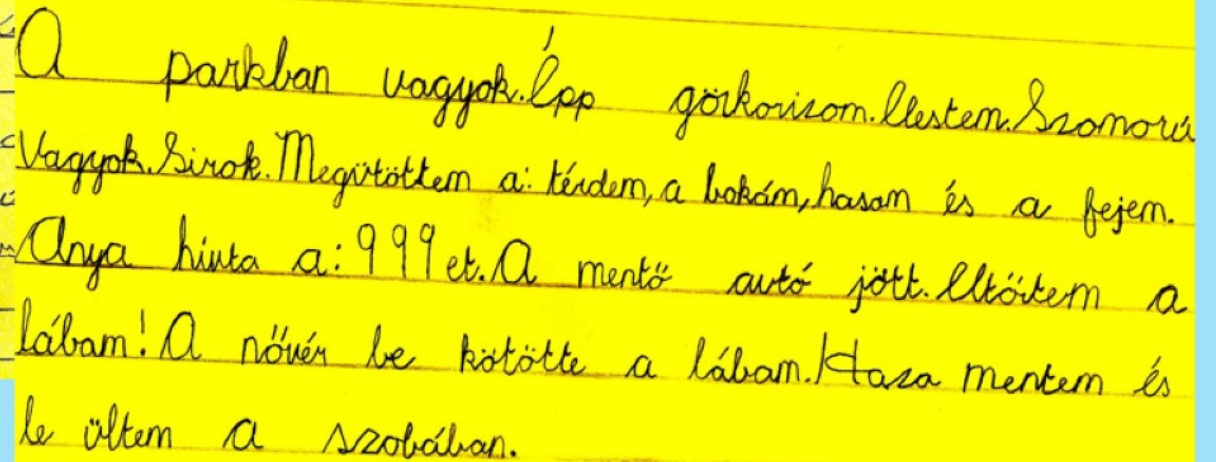 A parkban vagyok. Épp görkorizom. Elestem. Szomorú
Vagyok. Sirok. Megütöttem a: térdem, a bokám, hasam és a fejem.
Anya hivta a: 999 et. A mentő autó jött. Eltörtem a
lábam! A nővér be kötötte a lábam. Haza mentem és
le ültem a szobában.